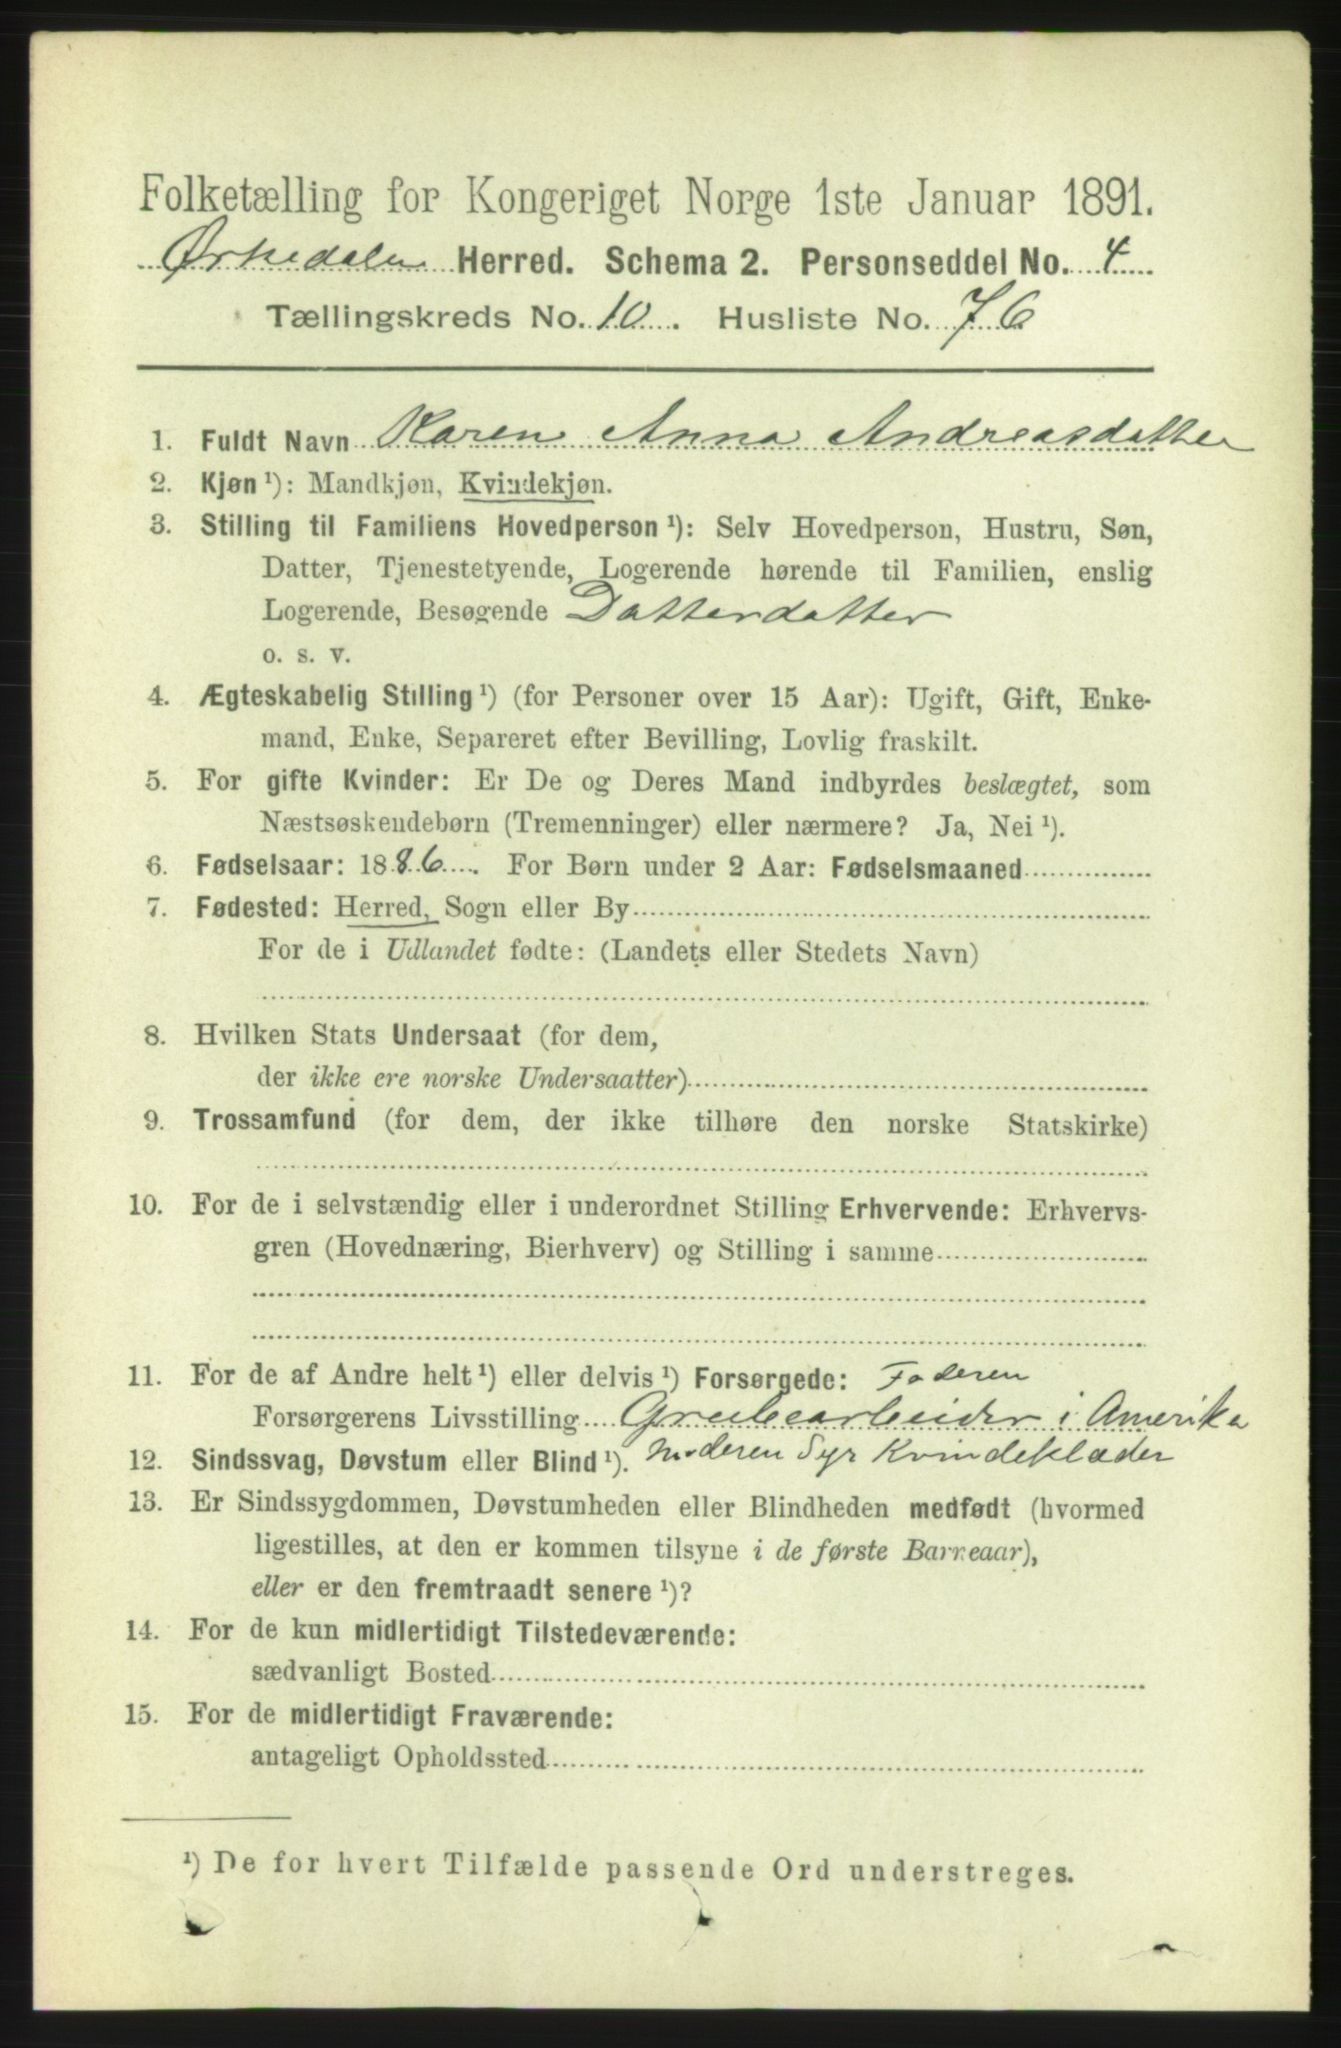 Folketælling for Kongeriget Norge 1ste Januar 1891.
Ørkedalen Herred. Schema 2. Personseddel No. 4
Tællingskreds No. 10. Husliste No. 76
1. Fuldt Navn Karen Anna Andreasdatter
2. Kjøn ¹): Mandkjøn, Kvindekjøn.
3. Stilling til Familiens Hovedperson ¹): Selv Hovedperson, Hustru, Søn,
Datter, Tjenestetyende, Logerende hørende til Familien, enslig
Logerende, Besøgende Datterdatter
o. s. v.
4. Ægteskabelig Stilling ¹) (for Personer over 15 Aar): Ugift, Gift, Enke-
mand, Enke, Separeret efter Bevilling, Lovlig fraskilt.
5. For gifte Kvinder: Er De og Deres Mand indbyrdes beslægtet, som
Næstsøskendebørn (Tremenninger) eller nærmere? Ja, Nei ¹).
6. Fødselsaar: 1886. For Børn under 2 Aar: Fødselsmaaned
7. Fødested: Herred, Sogn eller By
For de i Udlandet fødte: (Landets eller Stedets Navn)
8. Hvilken Stats Undersaat (for dem,
der ikke ere norske Undersaatter)
9. Trossamfund (for dem, der ikke tilhøre den norske Statskirke)
10. For de i selvstændig eller i underordnet Stilling Erhvervende: Erhvervs-
gren (Hovednæring, Bierhverv) og Stilling i samme
11. For de af Andre helt ¹) eller delvis ¹) Forsørgede: Faderen
Forsørgerens Livsstilling Grubearbeider i Amerika
12. Sindssvag, Døvstum eller Blind ¹). Moderen Syr Kvindeklæder
13. Er Sindssygdommen, Døvstumheden eller Blindheden medfødt (hvormed
ligestilles, at den er kommen tilsyne i de første Barneaar),
eller er den fremtraadt senere ¹)?
14. For de kun midlertidigt Tilstedeværende:
sædvanligt Bosted
15. For de midlertidigt Fraværende:
antageligt Opholdssted
¹) De for hvert Tilfælde passende Ord understreges.